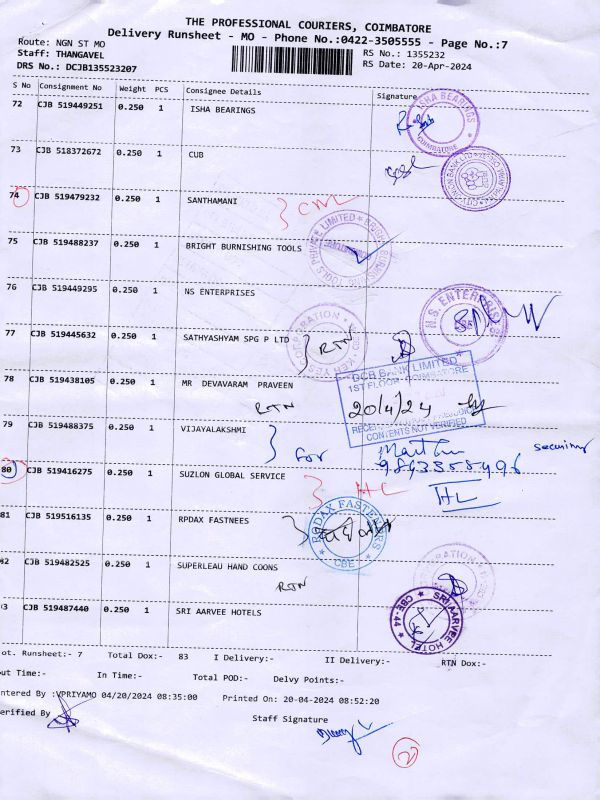 THE PROFESSIONAL COURIERS, COIMBATORE
Delivery Runsheet - MO - Phone No.:0422-3505555 - Page No.:7
Route: NGN ST MO
RS No.: 1355232
Staff: THANGAVEL
RS Date: 20-Apr-2024
DRS No.: DCJB135523207
S No Consignment No Weight PCS Consignee Details Signature
72 CJB 519449251 0.250 1 ISHA BEARINGS
ISHA BEARINGS
COIMBATORE
73 CJB 518372672 0.250 1 CUB
74 CJB 519479232 0.250 1 SANTHAMANI
75 CJB 519488237 0.250 1 BRIGHT BURNISHING TOOLS
76 CJB 519449295 0.250 1 NS ENTERPRISES
77 CJB 519445632 0.250 1 SATHYASHYAM SPG P LTD RTN
DCB BANK LIMITED
1ST FLOOR COIMBATORE
78 CJB 519438105 0.250 1 MR DEVAVARAM PRAVEEN
RTN
20/4/24
CONTENTS NOT VERIFIED
79 CJB 519488375 0.250 1 VIJAYALAKSHMI
for
security
80 CJB 519416275 0.250 1 SUZLON GLOBAL SERVICE
HL
HL
81 CJB 519516135 0.250 1 RPDAX FASTNEES
RPDAX FASTENERS
CBE
82 CJB 519482525 0.250 1 SUPERLEAU HAND COONS
RTN
93 CJB 519487440 0.250 1 SRI AARVEE HOTELS
SRI AARVEE HOTEL
CBE-44
ot. Runsheet:- 7 Total Dox:- 83 I Delivery:- II Delivery:- RTN Dox:-
out Time:- In Time:- Total POD:- Delvy Points:-
ntered By :VPRIYAMO 04/20/2024 08:35:00 Printed On: 20-04-2024 08:52:20
erified By
Staff Signature